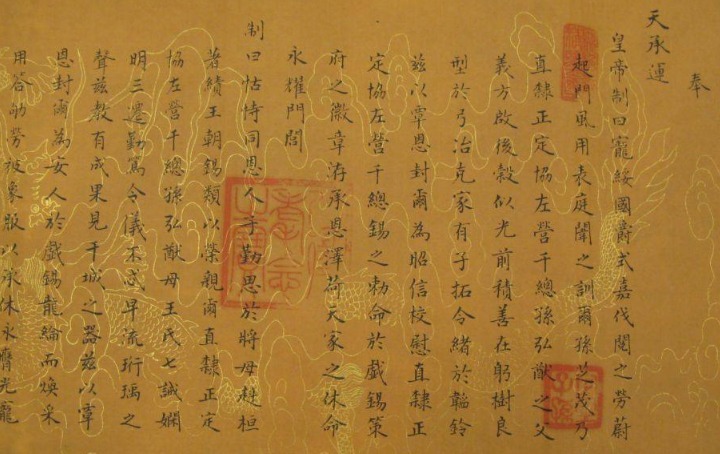 奉
天承運
皇帝制曰寵綏國爵式嘉伐閱之勞蔚
起門風用表庭聞之訓爾孫芝茂乃
直隸正定協左營千總孫弘猷之父
義方啟後穀似光前積善在躬樹良
型於弓冶克家有子拓令緒於韜鈐
茲以覃恩封爾為昭信校慰直隸正
定協左營千總錫之勅命於戲錫策
府之徽章洊承恩澤荷天家之休命
永耀門閭
制曰怙恃同恩人子勤思於將母赳桓
著績王朝錫類以榮親爾直隸正定
協左營千總孫弘猷母王氏七誡嫻
明三遷勤篤令儀不忒早流珩瑀之
聲茲穀有成果見干城之器茲以覃
恩封爾為安人於戲錫龍綸而煥采
用答劬勞被象服以承休永膺光寵